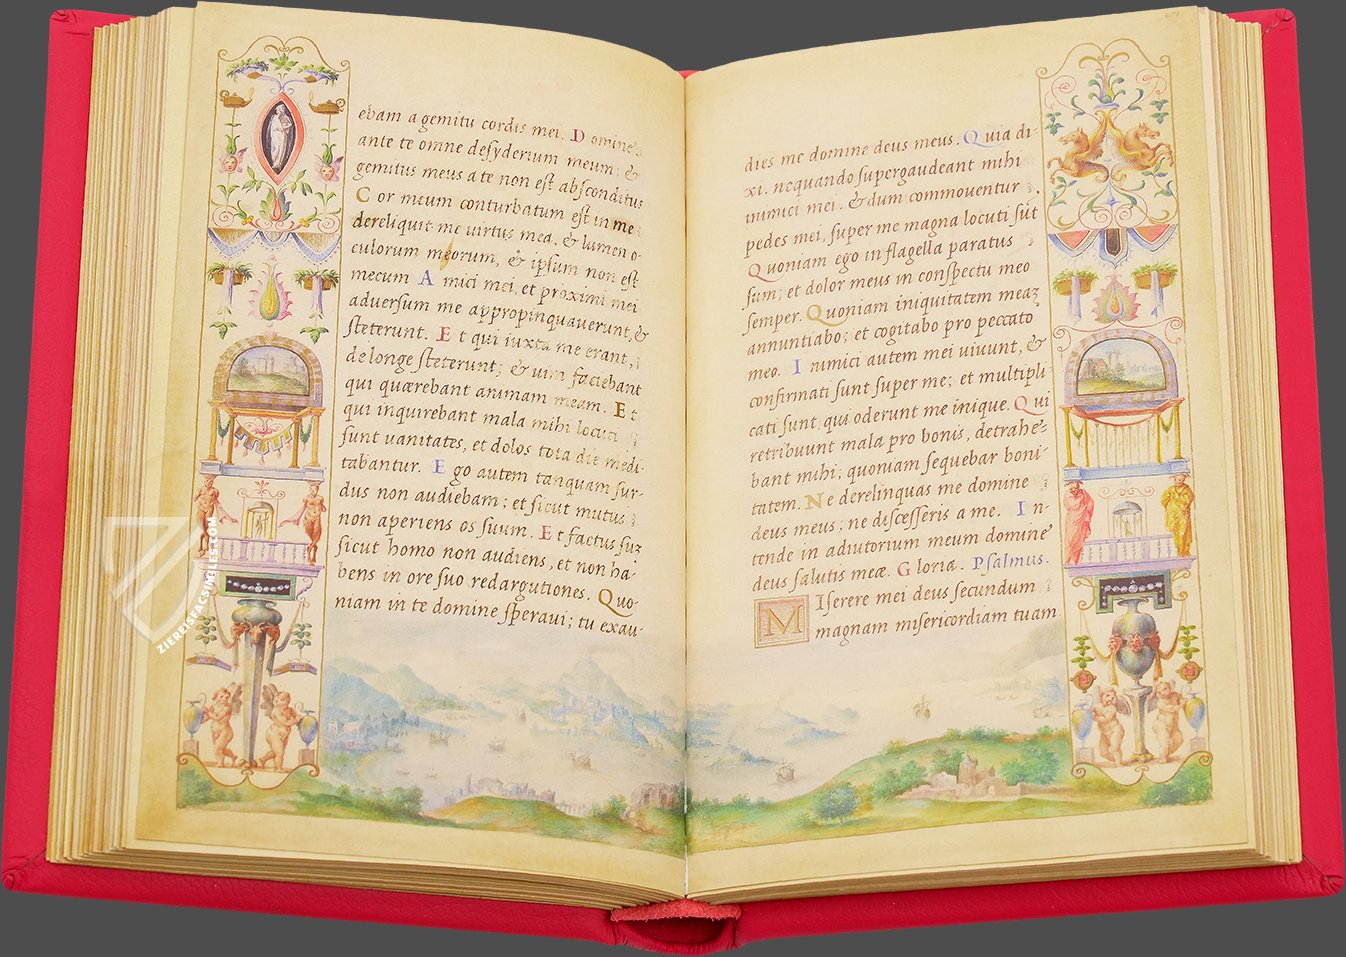 ebam a gemitu cordis mei. Domine
ante te omne desyderium meum; &
gemitus meus a te non est absconditus
Cor meum conturbatum est in me
dereliquit me uirtus mea, & lumen o-
culorum meorum, & ipsum non est
mecum Amici mei, et proximi mei
aduersum me appropinquauerunt, &
steterunt. Et qui iuxta me erant,
de longe steterunt; & uim faciebant
qui quærebant animam meam. Et
qui inquirebant mala mihi locuti
sunt uanitates, et dolos tota die medi-
tabantur. Ego autem tanquam sur-
dus non audiebam; et sicut mutus
non aperiens os suum. Et factus sũ
sicut homo non audiens, et non ha-
bens in ore suo redargutiones. Quo-
niam in te domine speraui; tu exau-
dies me domine deus meus. Quia di-
xi. nequando supergaudeant mihi
inimici mei. & dum commouentur
pedes mei, super me magna locuti sũt
Quoniam ego in flagella paratus
sum; et dolor meus in conspectu meo
semper. Quoniam iniquitatem meaʒ
annuntiabo; et cogitabo pro peccato
meo. Inimici autem mei uiuunt, &
confirmati sunt super me; et multipli-
cati sunt, qui oderunt me inique. Qui
retribuunt mala pro bonis, detrahe-
bant mihi; quoniam sequebar boni-
tatem. Ne derelinquas me domine
deus meus; ne discesseris a me. In-
tende in adiutorium meum domine
deus salutis meæ. Gloria. Psalmus.
MIserere mei deus secundum
magnam misericordiam tuam
ZIEREISFACSIMILES.COM